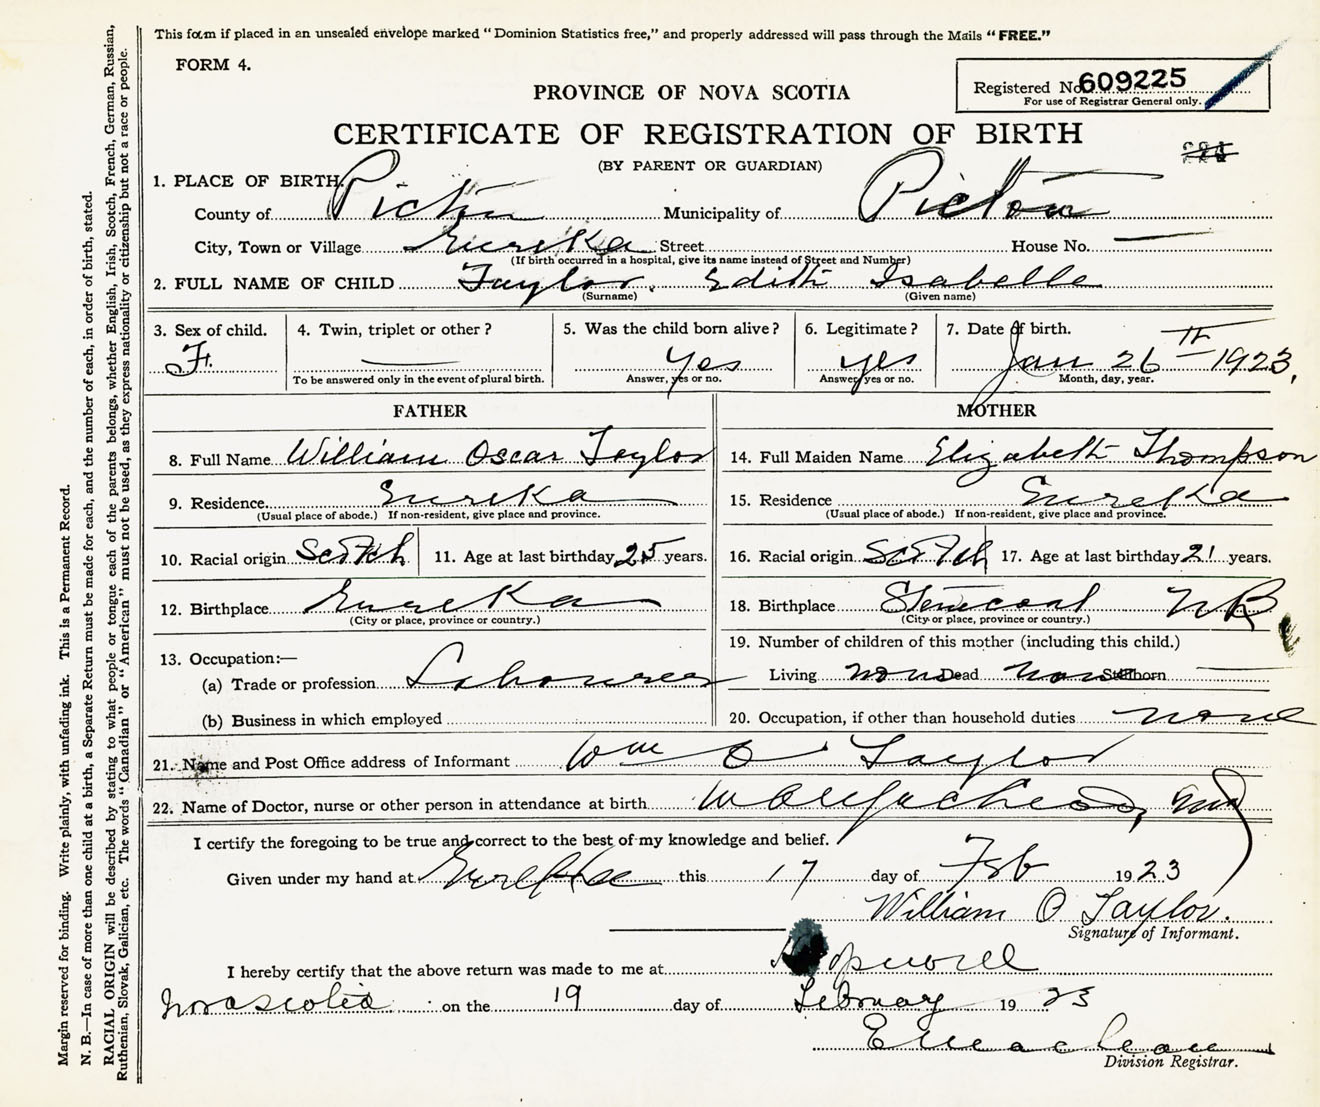 This form if placed in an unsealed envelope marked "Dominion Statistics free," and properly addressed will pass through the Mails "FREE."
FORM 4.
Registered No. 609225
For use of Registrar General only.
PROVINCE OF NOVA SCOTIA
CERTIFICATE OF REGISTRATION OF BIRTH
(BY PARENT OR GUARDIAN)
1. PLACE OF BIRTH
County of Pictou Municipality of Pictou
City, Town or Village Eureka Street House No. —
(If birth occurred in a hospital, give its name instead of Street and Number)
2. FULL NAME OF CHILD Taylor. Edith Isabelle
(Surname) (Given name)
3. Sex of child. 4. Twin, triplet or other? 5. Was the child born alive? 6. Legitimate? 7. Date of birth.
F. — Yes yes Jan 26th 1923,
To be answered only in the event of plural birth. Answer, yes or no. Answer, yes or no. Month, day, year.
FATHER MOTHER
8. Full Name William Oscar Taylor 14. Full Maiden Name Elizabeth Thompson
9. Residence Eureka 15. Residence Eureka
(Usual place of abode.) If non-resident, give place and province. (Usual place of abode.) If non-resident, give place and province.
10. Racial origin Scotch 11. Age at last birthday 25 years. 16. Racial origin Scotch 17. Age at last birthday 21 years.
12. Birthplace Eureka 18. Birthplace NB
(City or place, province or country.) (City or place, province or country.)
13. Occupation:— 19. Number of children of this mother (including this child.)
(a) Trade or profession Labourer Living none Dead none Stillborn —
(b) Business in which employed 20. Occupation, if other than household duties none
21. Name and Post Office address of Informant Wm O Taylor
22. Name of Doctor, nurse or other person in attendance at birth
I certify the foregoing to be true and correct to the best of my knowledge and belief.
Given under my hand at Eureka this 17 day of Feb 1923
William O Taylor.
Signature of Informant.
I hereby certify that the above return was made to me at Hopewell
Nova Scotia on the 19 day of February 1923
Division Registrar.
Margin reserved for binding. Write plainly, with unfading ink. This is a Permanent Record.
N. B.—In case of more than one child at a birth, a Separate Return must be made for each, and the number of each, in order of birth, stated.
RACIAL ORIGIN will be described by stating to what people or tongue each of the parents belongs, whether English, Irish, Scotch, French, German, Russian,
Ruthenian, Slovak, Galician, etc. The words "Canadian" or "American" must not be used, as they express nationality or citizenship but not a race or people.